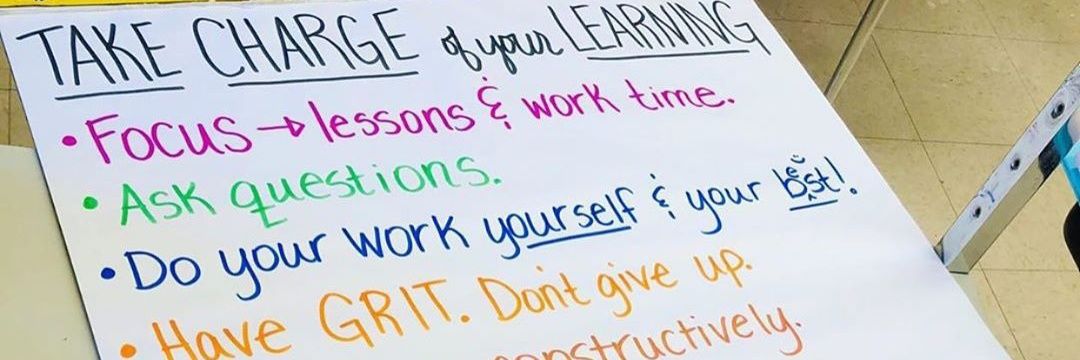 TAKE CHARGE of your LEARNING
• Focus → lessons & work time.
• Ask questions.
• Do your work yourself & your best!
• Have GRIT. Don't give up.
constructively.